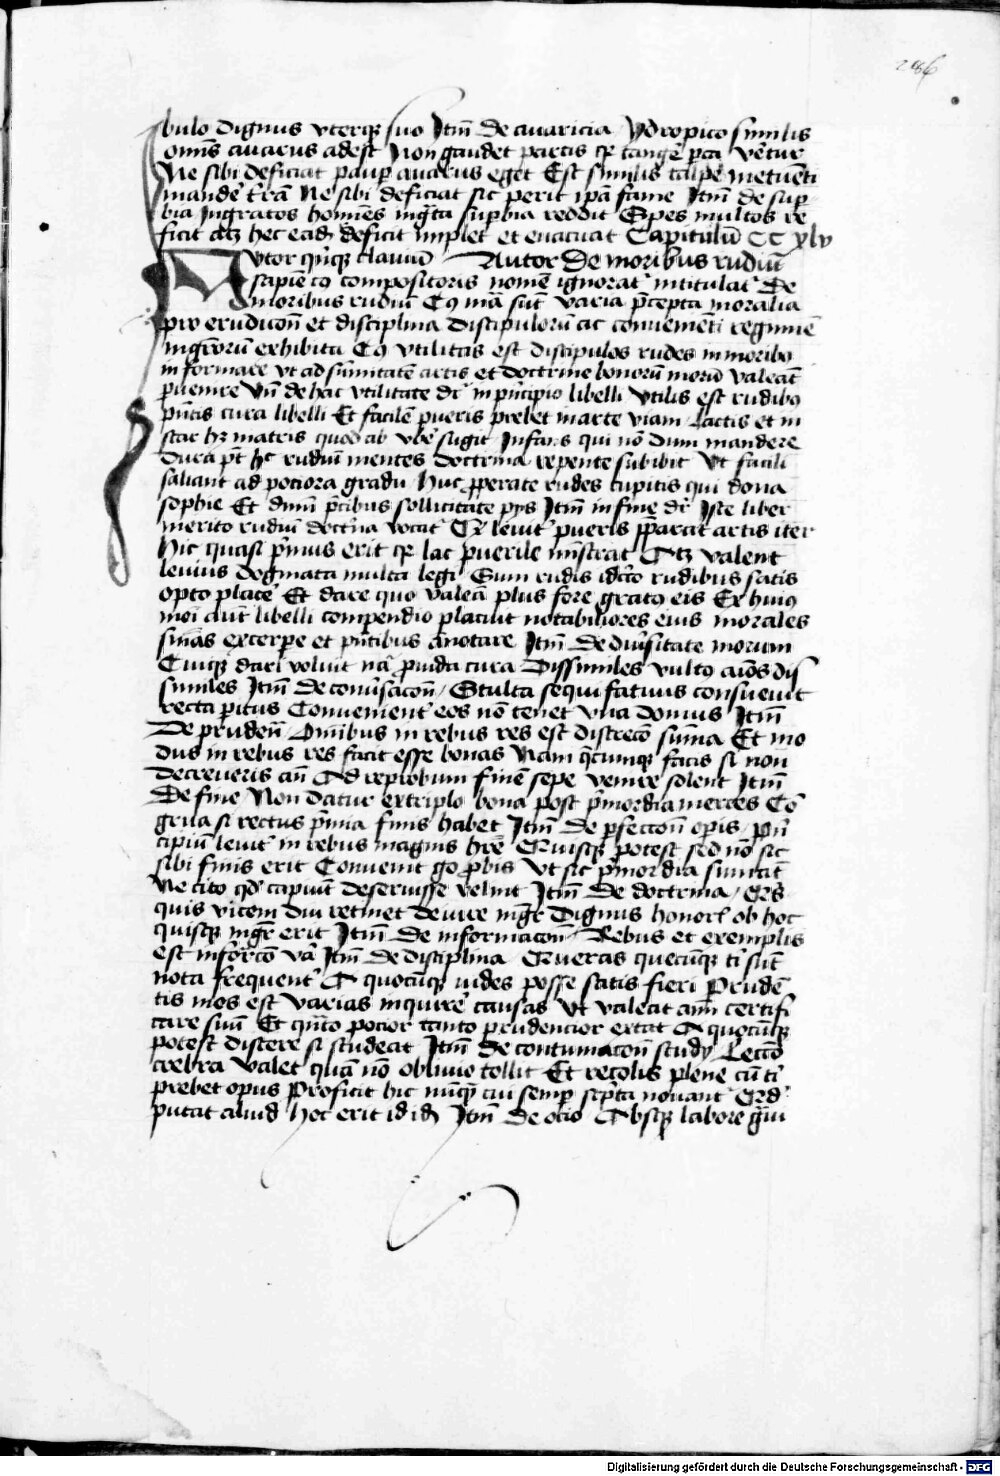 286
bulo dignus vterqꝫ suo Itm̄ de auaricia ydropico similis
om̄is auarus adest Non gaudet partis qr̄ tangē p̄ta veret̄
Ne sibi deficiat paup̄ auarus eget Est similis talpe metuēti
mandē trā Ne sibi deficiat sic perit ip̄a fame Itm̄ de sup̄
bia Ingratos homīes ingr̄ta sup̄bia reddit Spes multos re
ficit atqꝫ hec eadē deficit implet et euacuat Capitulū CC xlv
Avtor de moribus rudiū
sapiēs cꝯ compositoris nomē ignorat̄ intitulat̄ de
moribus rudiū Cꝯ mā sūt varia p̄cepta moralia
pro erudicōn̄ et disciplina discipulorū ac conuenienti regimīe
mgr̄orū exhibita Cꝯ vtilitas est discipulos rudes in moribꝯ
informare vt ad sūmitatē artis et doctrine bonorū morū valeāt
p̄uenire Vn̄ de hac vtilitate dr̄ in p̄ncipio libelli Vtilis est rudibꝯ
p̄ntis cura libelli Et facilē pueris prebet in arte viam Lactis et in
star hꝫ matris quod ab vbē sugit Infans qui nō dum mandere
dura p̄t hc̄ rudiū mentes doctrina repente subibit Vt facili
saliant ad pociora gradu Huc p̄perate rudes cupitis qui dona
sophie Et dnm̄ p̄cibus sollicitate pijs Itm̄ in fine dr̄ Iste liber
merito rudiū doctr̄na vocat̄ Qr̄ leuit̄ pueris p̄parat artis iter
Hic quasi p̄mus erit qr̄ lac puerile mīstrat Atqꝫ valent
leuius dogmata multa legi Sum rudis idcīo rudibus satis
opto placē Et dare quo valeā plus fore gratꝯ eis Ex huiꝯ
mōi aūt libelli compendio placuit notabiliores eius morales
sn̄ias excerpe et p̄ntibus ānotare Itm̄ de diu̇sitate morum
Cuiqꝫ dari voluit nā p̄uida cura Dissimiles vultꝯ aīos dis
similes Itm̄ de conu̇sacōn̄ Stulta sequi fatuus consueuit
recta p̄itus Conuenient̄ eos nō tenet vna domus Itm̄
De pruden̄ Omibus in rebus res est discrecō suma Et mo
dus in rebus res facit esse bonas Nam q̄cumqꝫ facis si non
decreueris an̄ Ad reprobum finē sepe venire solent Itm̄
De fine Non datur extriplo bona post p̄mordia merces Cō
grua si rectus p̄mia finis habet Itm̄ de p̄fectōn̄ op̄is P̄n
cipiū leuit̄ in rebus magnis hr̄e Quisqꝫ potest sed nō sic
sibi finis erit Conuenit g̊ p̄bis Vt sic p̄mordia sumāt
Ne cito qd̄ capiūt deseruisse velint Itm̄ de doctrina
quis vicem diu retinet de iure mgr̄ Dignus honor̄ ob hoc
quisqꝫ mgr̄ erit Itm̄ de informacōn̄ Rebus et exemplis
est informō va Itm̄ de disciplina Queras quecūqꝫ tˡ sūt
nota frequent̄ A quocūqꝫ vides posse satis fieri Prudē
tis mos est varias inquirē causas Vt valeat aīm certifi
care suū Et qn̄to pocior tanto prudencior extat A quocūqꝫ
potest discere si studeat Itm̄ de contumacōn̄ study Leccō
crebra valet quā nō obliuio tollit Et recolis plene cū tˡ
prebet opus Proficit hic nūqꝫ cui semp̄ sc̄pta nouant̄
putat aliud hoc erit id idē Itm̄ de ocio Absqꝫ labore gͣui
Digitalisierung gefördert durch die Deutsche Forschungsgemeinschaft - DFG